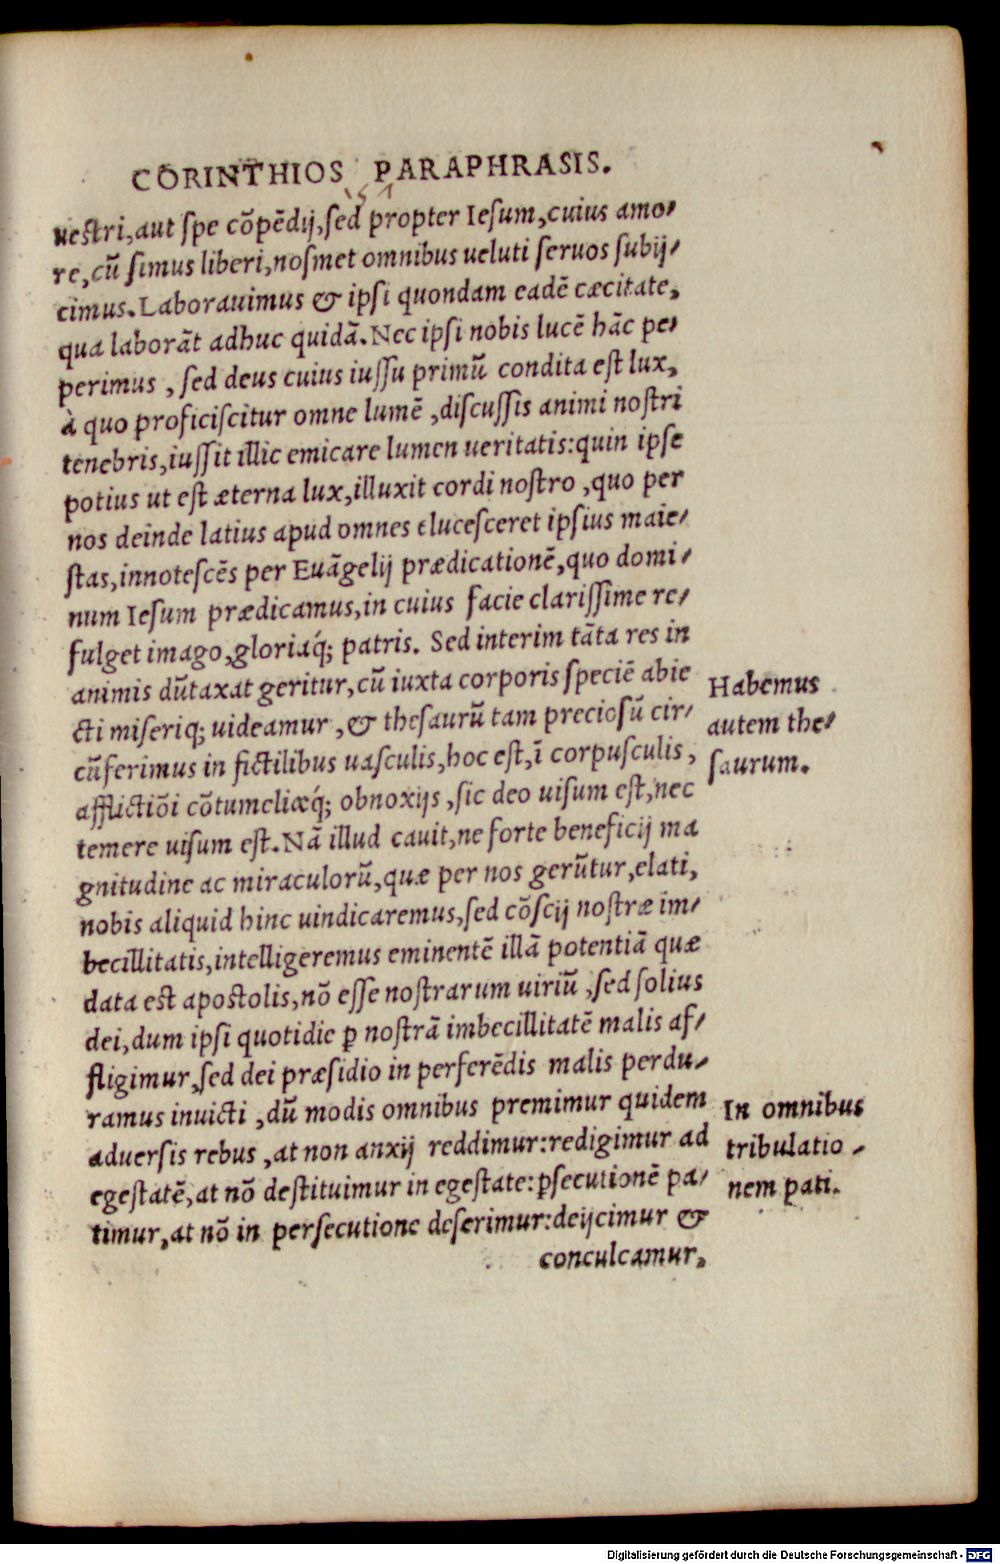 CORINTHIOS PARAPHRASIS.
uestri, aut spe cõpẽdij, sed propter Iesum, cuius amo-
re, cũ simus liberi, nosmet omnibus ueluti seruos subij-
cimus. Laborauimus & ipsi quondam eadẽ cæcitate,
qua laborãt adhuc quidã. Nec ipsi nobis lucẽ hãc pe-
perimus, sed deus cuius iussu primũ condita est lux,
à quo proficiscitur omne lumẽ, discussis animi nostri
tenebris, iussit illic emicare lumen ueritatis: quin ipse
potius ut est æterna lux, illuxit cordi nostro, quo per
nos deinde latius apud omnes elucesceret ipsius maie-
stas, innotescẽs per Euãgelij prædicationẽ, quo domi-
num Iesum prædicamus, in cuius facie clarissime re-
fulget imago, gloriaq́; patris. Sed interim tãta res in
animis dũtaxat geritur, cũ iuxta corporis speciẽ abie
cti miseriq; uideamur, & thesaurũ tam preciosũ cir-
cũferimus in fictilibus uasculis, hoc est, ĩ corpusculis,
afflictiõi cõtumeliæq́; obnoxijs, sic deo uisum est, nec
temere uisum est. Nã illud cauit, ne forte beneficij ma
gnitudine ac miraculorũ, quæ per nos gerũtur, elati,
nobis aliquid hinc uindicaremus, sed cõscij nostræ im-
becillitatis, intelligeremus eminentẽ illã potentiã quæ
data est apostolis, nõ esse nostrarum uiriũ, sed solius
dei, dum ipsi quotidie ꝑ nostrã imbecillitatẽ malis af-
fligimur, sed dei præsidio in perferẽdis malis perdu-
ramus inuicti, dũ modis omnibus premimur quidem
aduersis rebus, at non anxij reddimur: redigimur ad
egestatẽ, at nõ destituimur in egestate: ꝑsecutionẽ pa-
timur, at nõ in persecutione deserimur: deijcimur &
conculcamur,
Habemus
autem the-
saurum.
In omnibus
tribulatio-
nem pati.
Digitalisierung gefördert durch die Deutsche Forschungsgemeinschaft - DFG